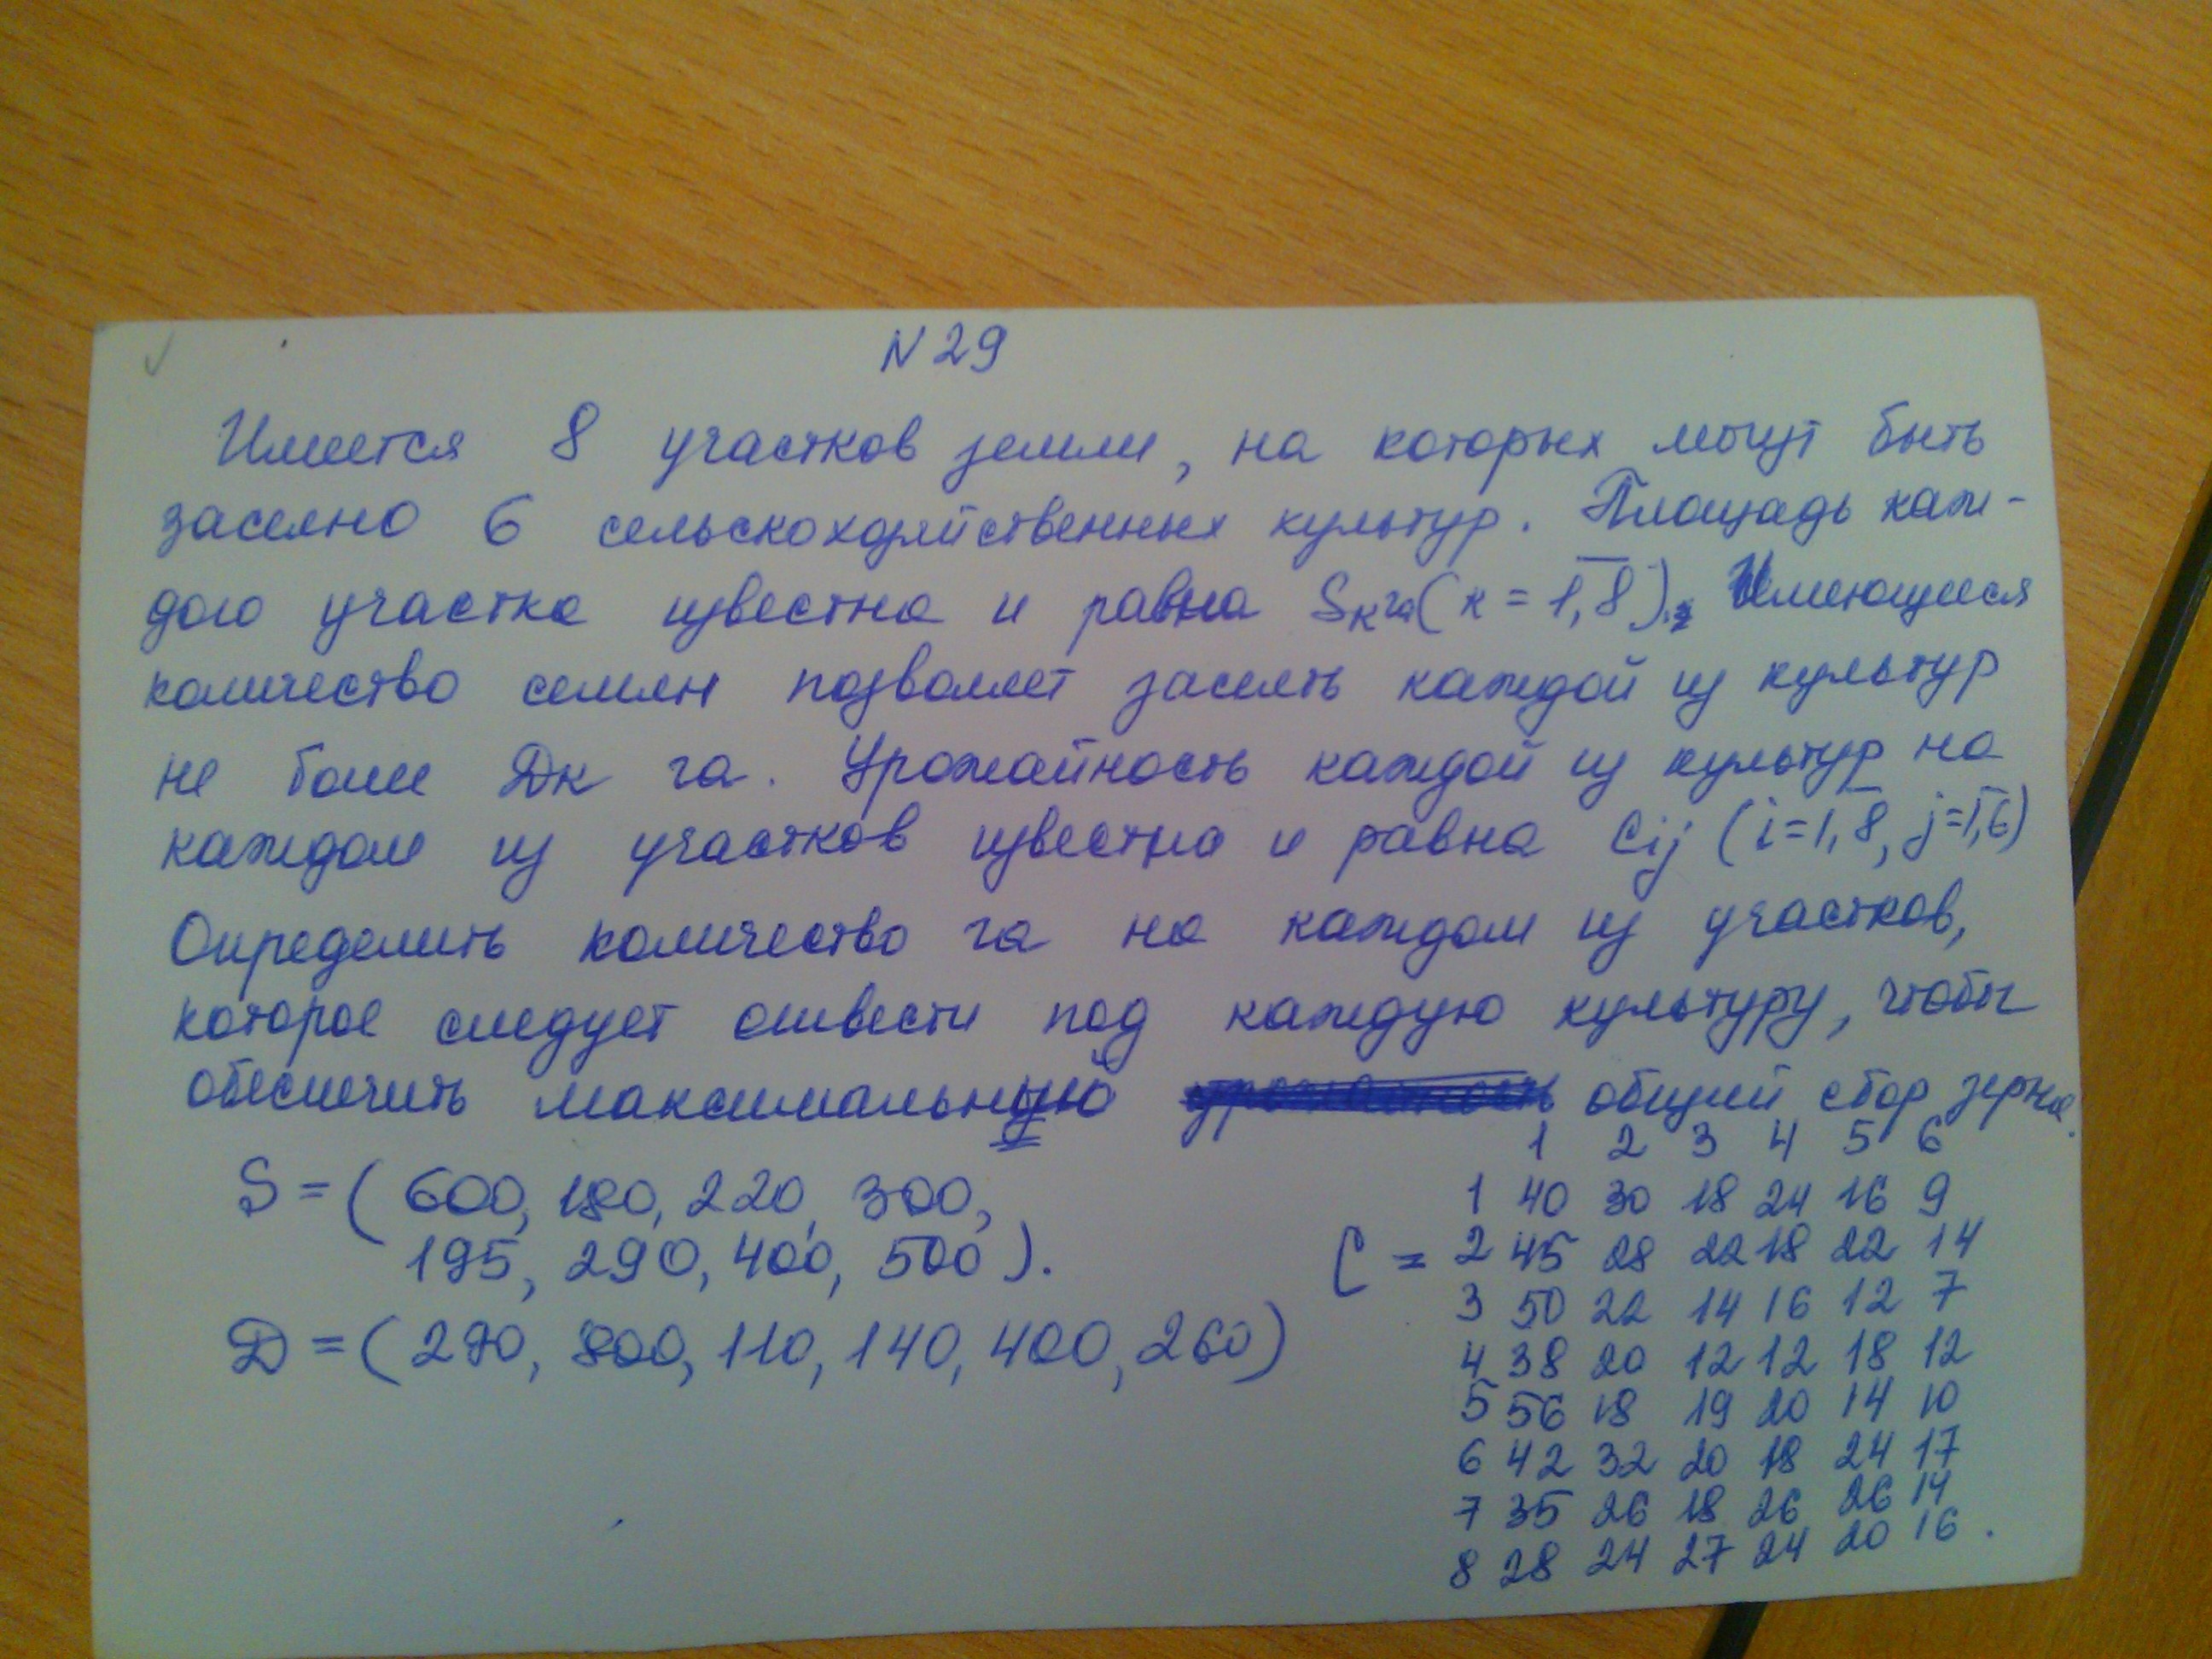 N 29
Имеется 8 участков земли, на которых могут быть
засеяно 6 сельскохозяйственных культур. Площадь каж-
дого участка известна и равна Sк га (к = 1,8). Имеющееся
количество семян позволяет засеять каждой из культур
не более Дк га. Урожайность каждой из культур на
каждом из участков известна и равна Cij (i=1,8, j=1,6)
Определить количество га на каждом из участков,
которое следует отвести под каждую культуру, чтобы
обеспечить максимальный общий сбор зерна.
S = ( 600, 180, 220, 300,
195, 290, 400, 500 ).
Д = ( 290, 800, 110, 140, 400, 260 )
1 2 3 4 5 6
1 40 30 18 24 16 9
C = 2 45 28 22 18 22 14
3 50 22 14 16 12 7
4 38 20 12 12 18 12
5 56 18 19 20 14 10
6 42 32 20 18 24 17
7 35 26 18 26 26 14
8 28 24 27 24 20 16 .